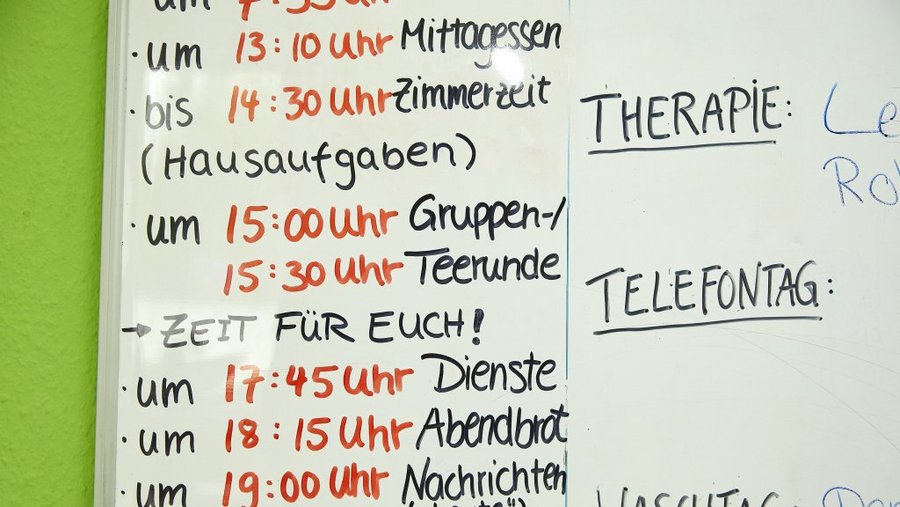 · um 13:10 Uhr Mittagessen
· bis 14:30 Uhr Zimmerzeit
(Hausaufgaben)
· um 15:00 Uhr Gruppen-/
15:30 Uhr Teerunde
→ ZEIT FÜR EUCH!
· um 17:45 Uhr Dienste
· um 18:15 Uhr Abendbrot
· um 19:00 Uhr Nachrichten
THERAPIE:
TELEFONTAG:
WASCHTAG: